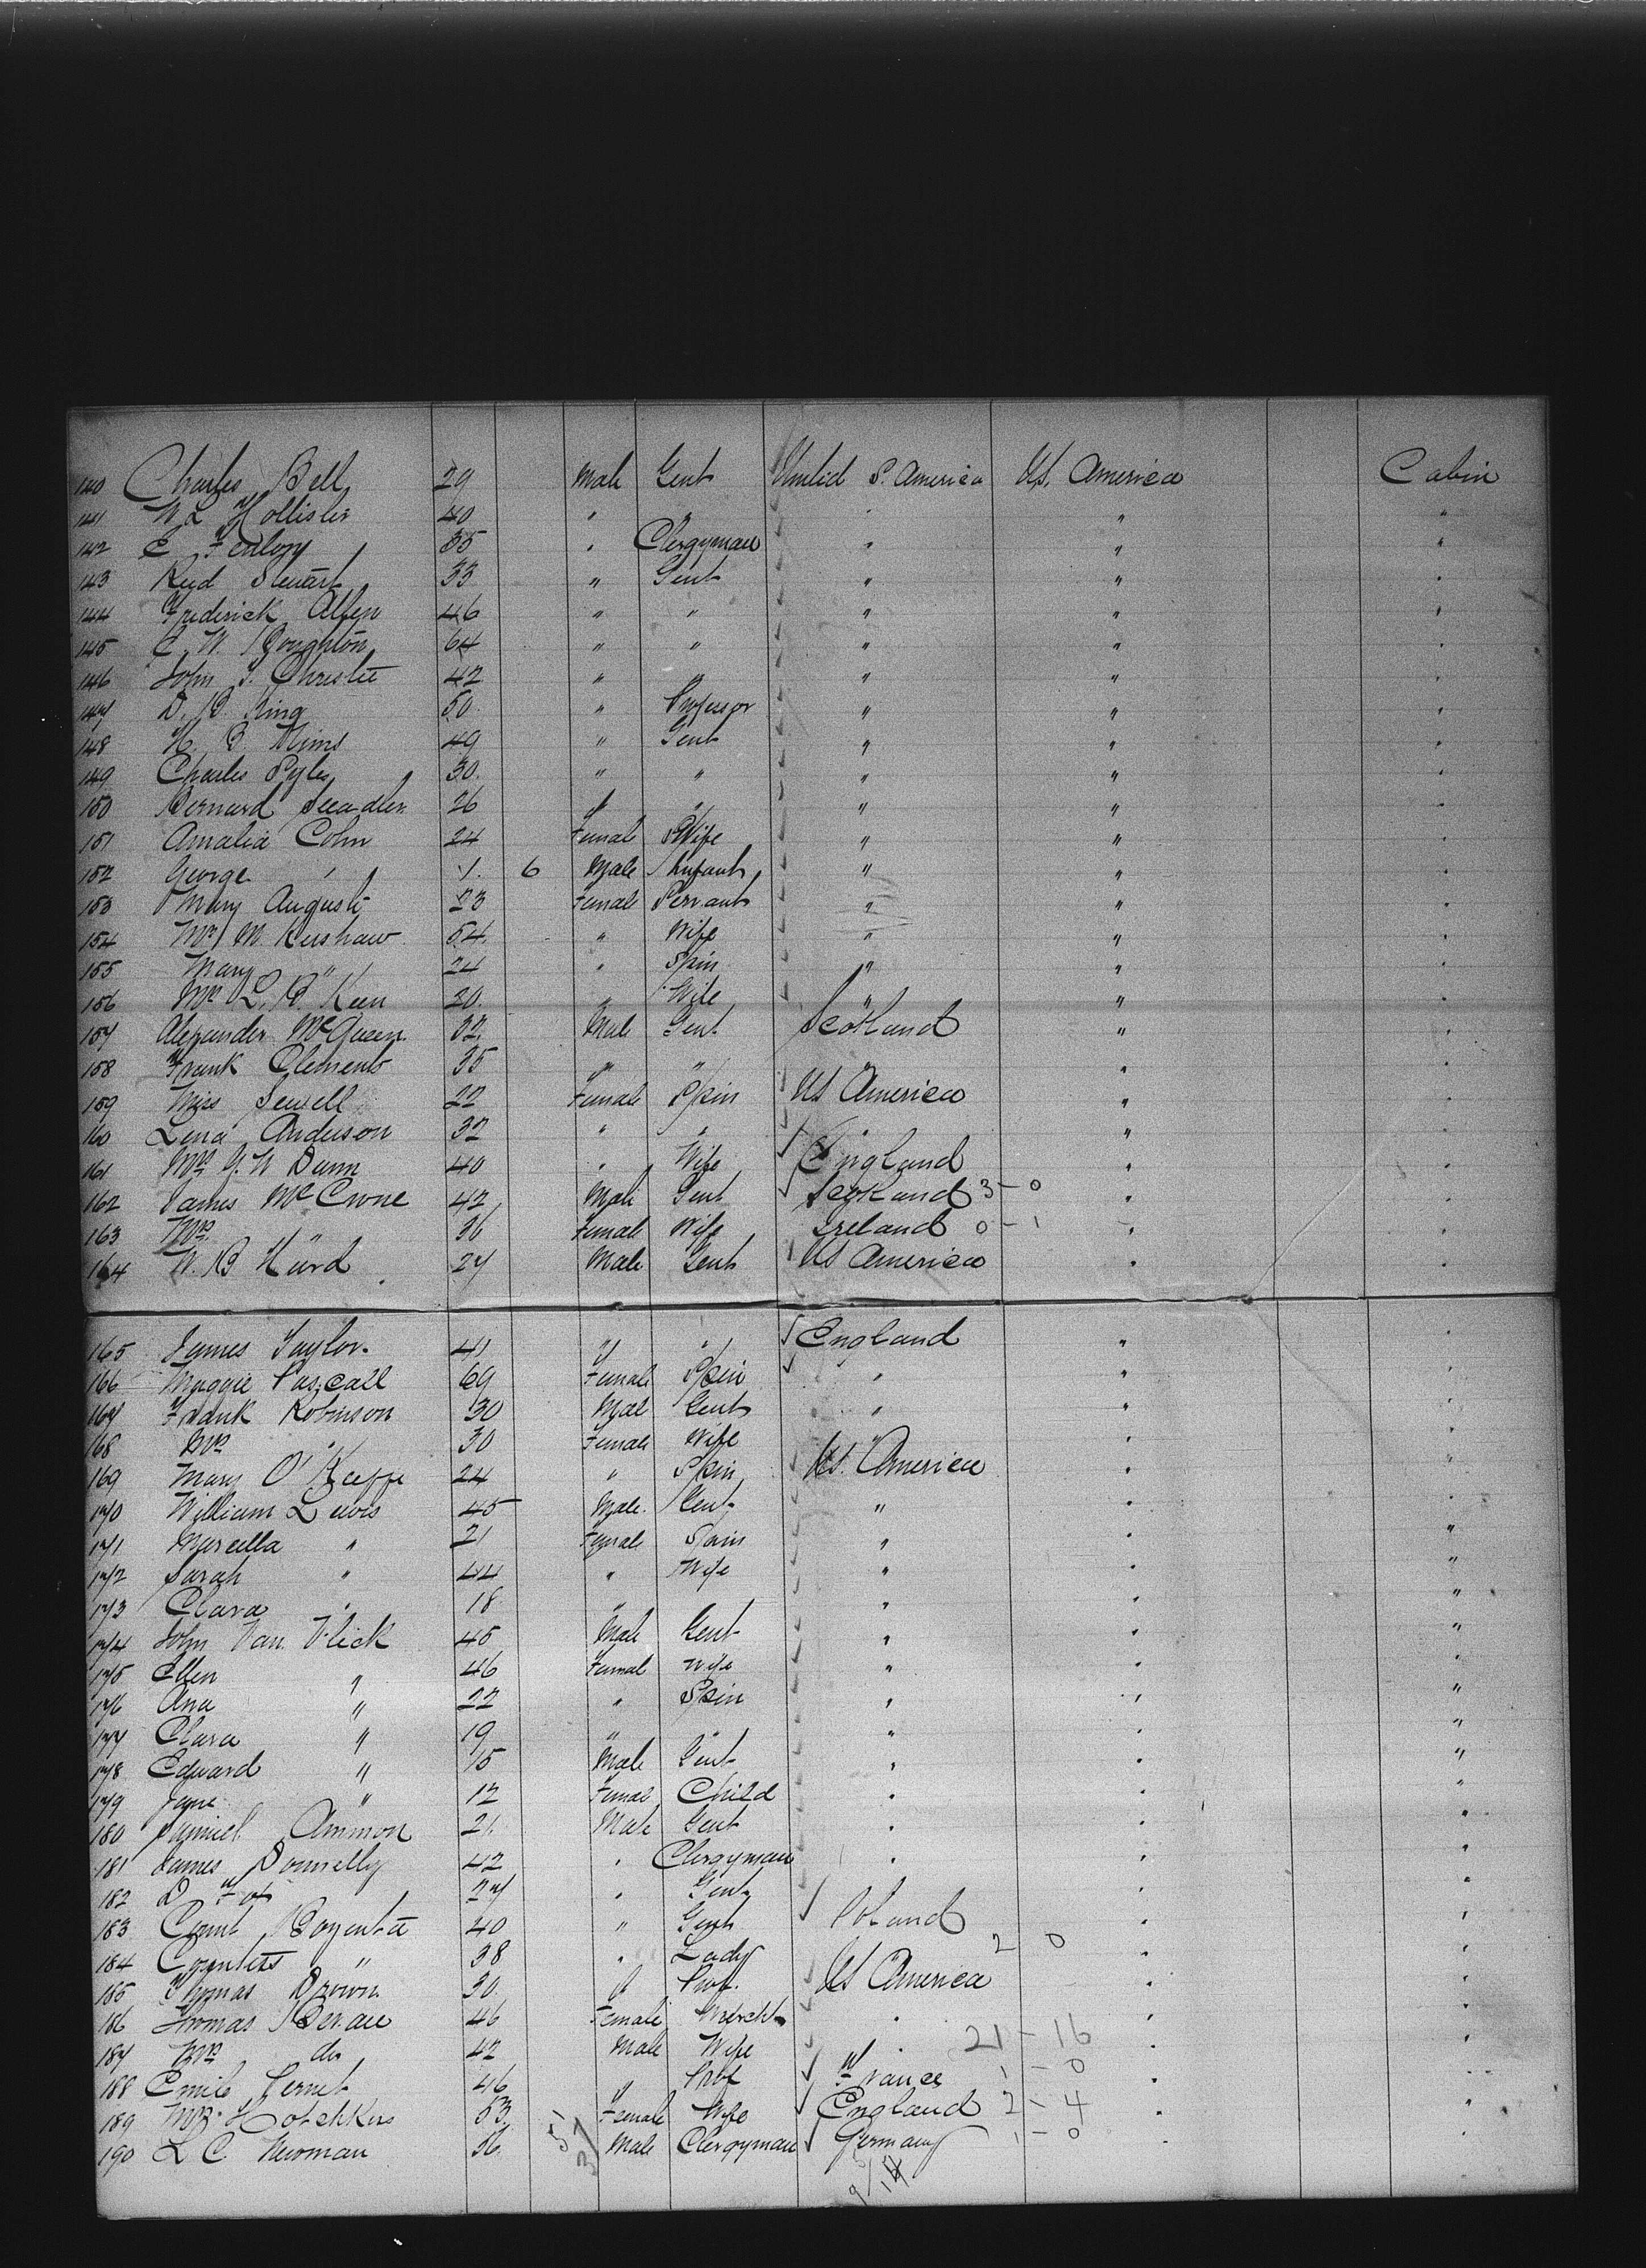 140 Charles Bell 29 Male Gent United S. America US. America Cabin
141 W L Hollister 40 " " " " "
142 E 35 " Clergyman " " "
143 Reyd Stewart 33 " Gent " " "
144 Frederick Allen 46 " " " " "
145 E. W. Boughton 64 " " " " "
146 John S. Christie 42 " " " " "
147 D. B. King 50 " Professor " " "
148 H. B. Mims 49 " Gent " " "
149 Charles Pyle 30. " " " " "
150 Bernard 26 " " " " "
151 Amalia Cohn 24 Female Wife " " "
152 George " 1. 6 Male Infant " " "
153 Mary August 23 Female Servant " " "
154 Mrs M Kershaw 54. " Wife " " "
155 Mary " 24 " Spin " " "
156 L. B Keen 30. " Wife " " "
157 Alexander McQueen. 32. Male Gent Scotland " "
158 Frank Clements 35 " " " " "
159 Miss Sewell 22 Female Spin US America " "
160 Lena Anderson 32 " " " " "
161 Mrs G. W Dunn 40 " Wife England " "
162 James McCrone 42 Male Gent Scotland 3 - 0 " "
163 Mrs " 36 Female Wife Ireland 0 - 1 " "
164 W. B Hurd 27 Male Gent US America " "
165 James Taylor. 41 " " England " "
166 Maggie Pascall 69 Female Spin " " "
167 Frank Robinson 30 Male Gent " " "
168 Mrs " 30 Female Wife " " "
169 Mary O'Keeffe 24 " Spin US. America " "
170 William Lewis 45 Male. Gent " " "
171 Marcella " 21 Female Spin " " "
172 Sarah " 44 " Wife " " "
173 Clara " 18 " " " " "
174 John Van Vlick 45 Male Gent " " "
175 Ellen " 46 Femal Wife " " "
176 Ana " 22 " Spin " " "
177 Clara " 19 " " " " "
178 Edward " 15 Male Gent " " "
179 Jane " 12 Female Child " " "
180 Samuel Ammon 21. Male Gent " " "
181 James Donnelly 42 " Clergyman " " "
182 D Fox 27 " Gent " " "
183 Count Bozenta 40 " Gent Poland " "
184 Countess " 38 " Lady " 2 0 " "
185 Thomas Brown 30. " Prof. US America " "
186 Thomas 46 Female Mercht " " "
187 Mrs do 42 Male Wife " 21 - 16 " "
188 Emile Pernet 46 " Prof France 1 - 0 " "
189 Mrs. Hotchkiss 53 Female Wife England 2 - 4 " "
190 L C Newman 36. Male Clergyman Germany 1 - 0 " "
51
37